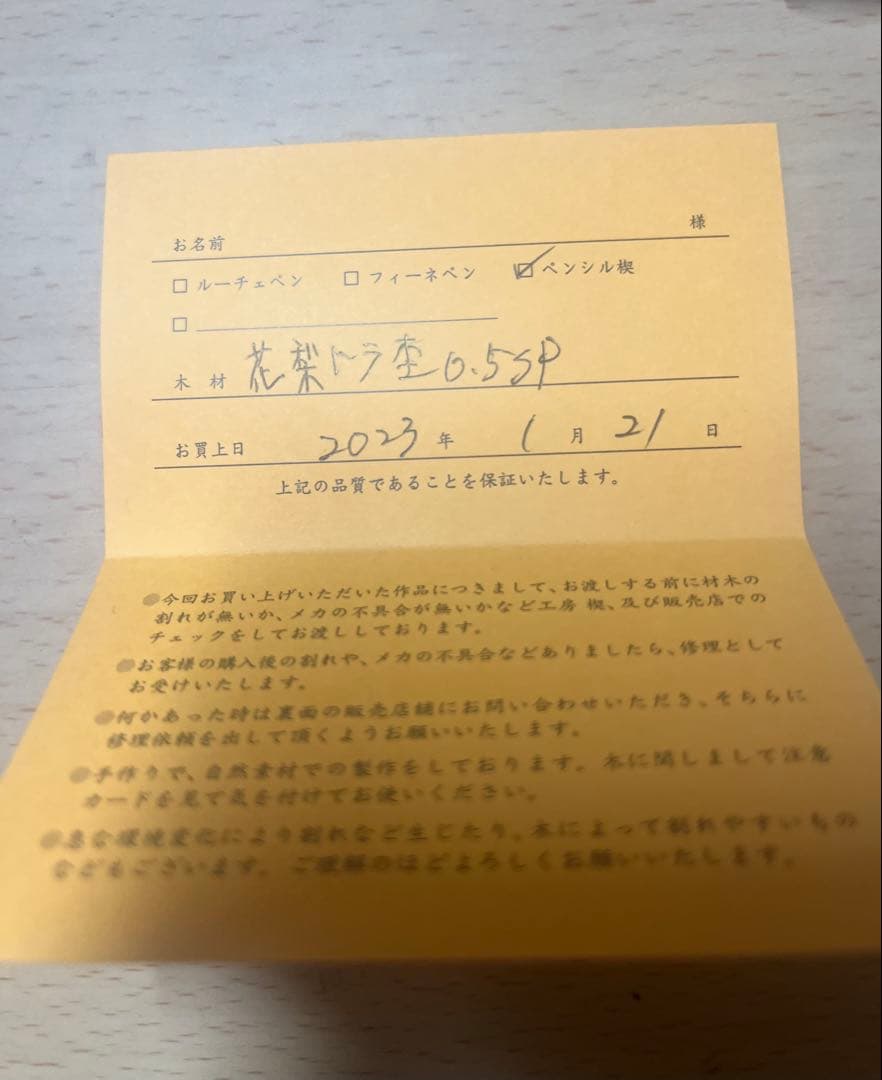 お名前 様
□ ルーチェペン □ フィーネペン ☑ ペンシル楔
□
木 材 花梨トラ杢0.5SP
お買上日 2023 年 1 月 21 日
上記の品質であることを保証いたします。
●今回お買い上げいただいた作品につきまして、お渡しする前に材木の
割れが無いか、メカの不具合が無いかなど工房 楔、及び販売店での
チェックをしてお渡ししております。
●お客様の購入後の割れや、メカの不具合などありましたら、修理として
お受けいたします。
●何かあった時は裏面の販売店舗にお問い合わせいただき、そちらに
修理依頼を出して頂くようお願いいたします。
●手作りで、自然素材での製作をしております。木に関しまして注意
カードを見て気を付けてお使いください。
●急な環境変化により割れなど生じたり、木によって割れやすいもの
などもございます。ご理解のほどよろしくお願いいたします。